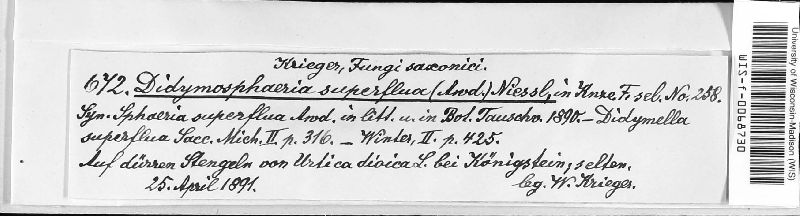 Krieger, Fungi saxonici.
672. Didymosphaeria superflua (Awd.) Niessl, in Kunze F. sel. No. 258.
Syn. Sphaeria superflua Awd. in litt. u. in Bot. Tauschv. 1890. – Didymella
superflua Sacc. Mich. II p. 316. – Winter, II. p. 425.
Auf dürren Stengeln von Urtica dioica L. bei Königstein; selten.
25. April 1891. leg. W. Krieger.
University of Wisconsin-Madison (WIS)
WIS-f-0068730